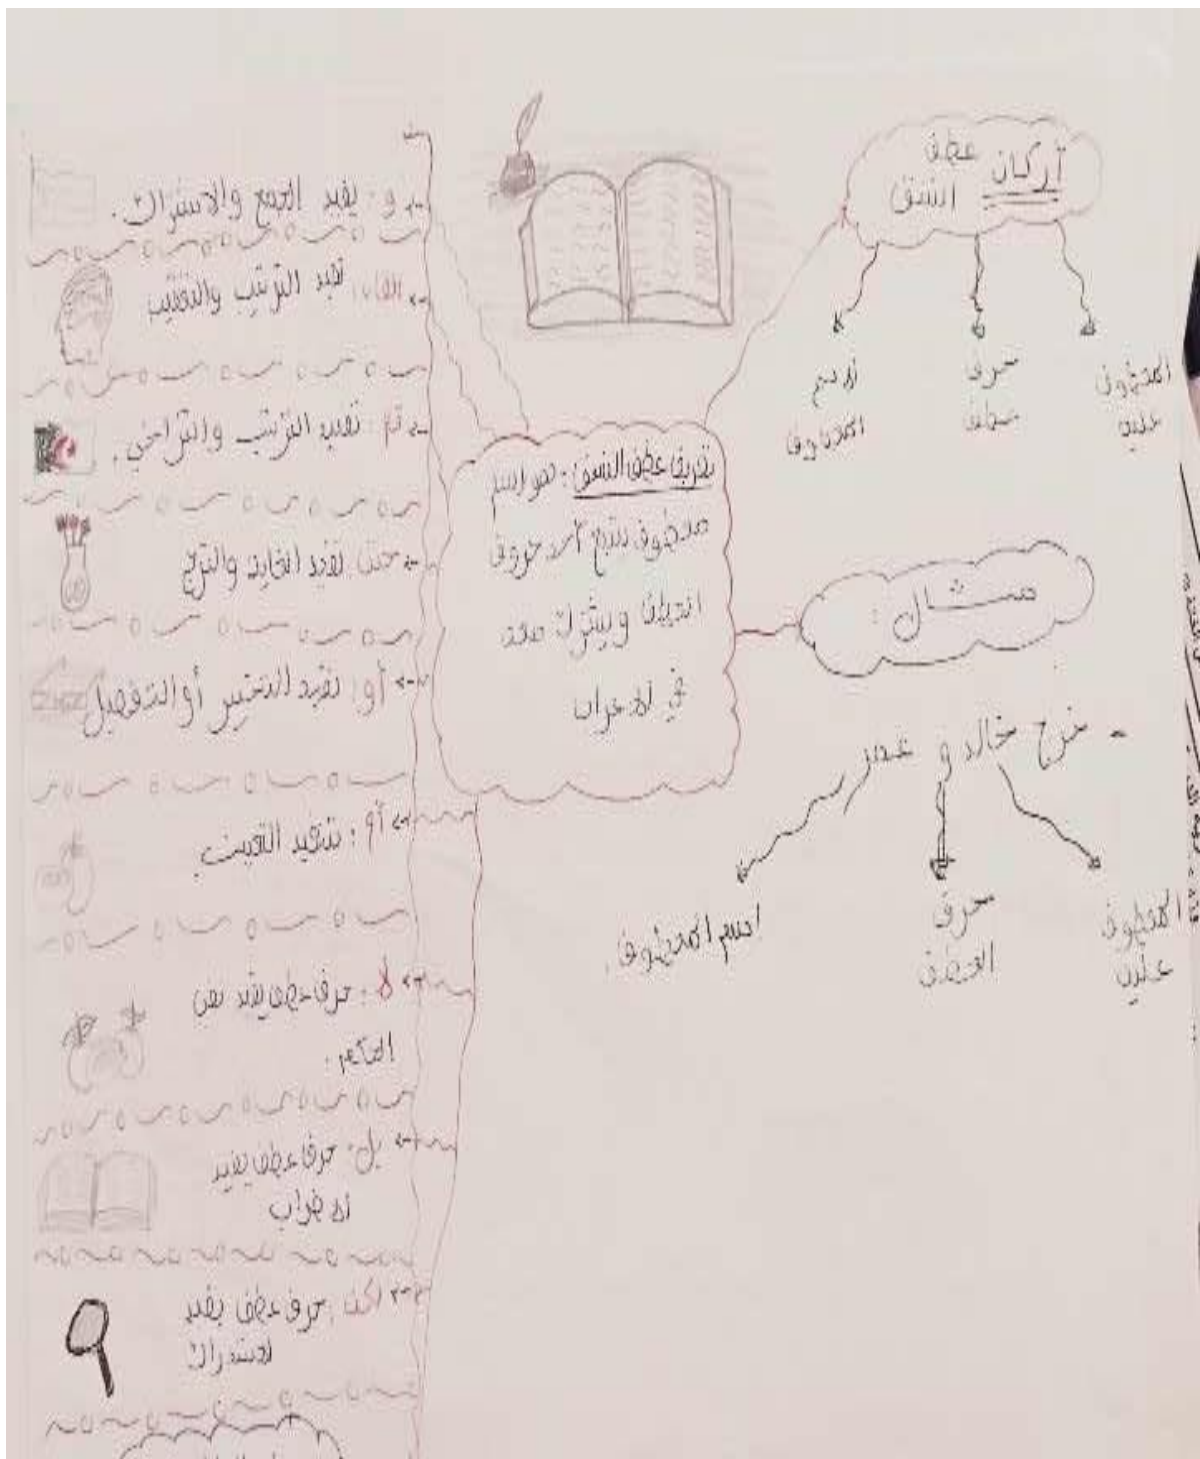 أركان عطف
النسق
المعطوف
عليه
حرف
عطف
الاسم
المعطوف
تعريف عطف النسق: هو اسم
معطوف يتبع أحد حروف
العطف ويشترك معه
في الاعراب
مثال:
- خرج خالد و عمر
المعطوف
عليه
حرف
العطف
اسم المعطوف.
و: يفيد الجمع والاشتراك.
الفاء: تفيد الترتيب والتعقيب
ثم: تفيد الترتيب والتراخي.
حتى: تفيد الغاية والتدرج
أو: تفيد التخيير أو التفصيل
أم: تفيد التعيين
لا: حرف عطف يفيد نفي
الحكم.
بل: حرف عطف يفيد
الاضراب
لكن: حرف عطف يفيد
الاستدراك